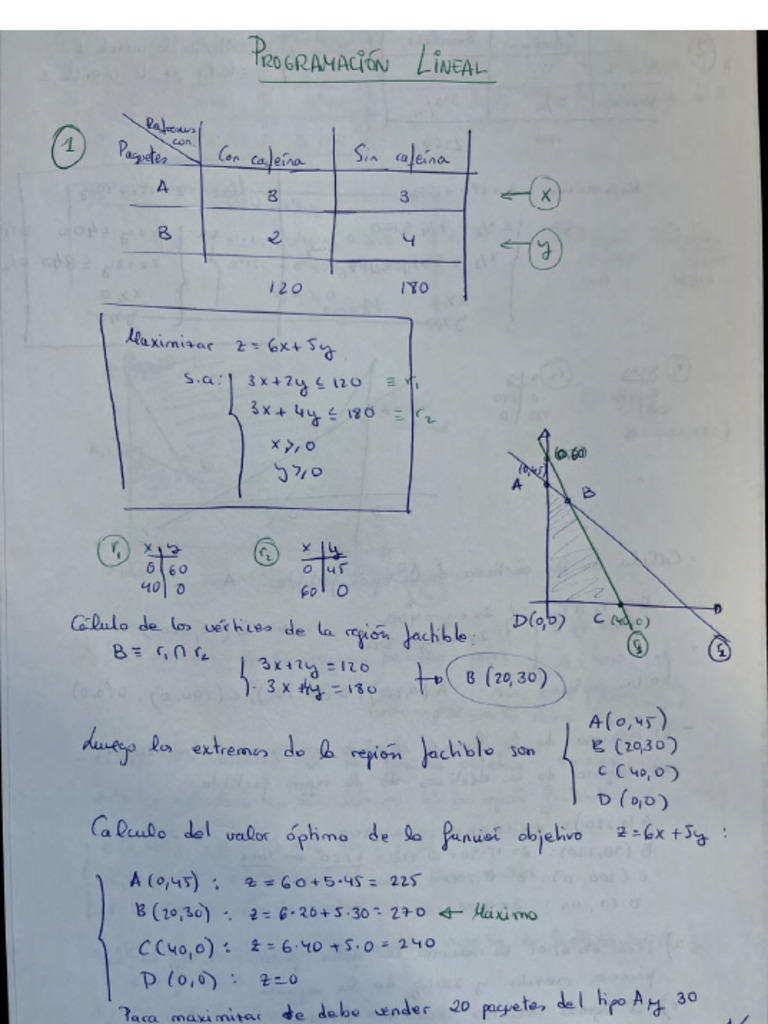 PROGRAMACIÓN LINEAL
1
Refrescos con.
Paquetes
Con cafeína
Sin cafeína
A 3 3 ← x
B 2 4 ← y
120 180
Maximizar z = 6x + 5y
s.a: 3x + 2y ≤ 120 ≡ r₁
3x + 4y ≤ 180 ≡ r₂
x ≥ 0
y ≥ 0
(0,60)
(0,45)
A
B
D(0,0) C (40,0)
r₁ r₂
r₁ x y
0 60
40 0
r₂ x y
0 45
60 0
Cálculo de los vértices de la región factible:
B ≡ r₁ ∩ r₂
3x + 2y = 120
- 3x 4y = 180
→ B (20,30)
Luego los extremos de la región factible son
A(0,45)
B (20,30)
C (40,0)
D (0,0)
Calculo del valor óptimo de la función objetivo z = 6x + 5y :
A (0,45) : z = 6·0 + 5·45 = 225
B (20,30) : z = 6·20 + 5·30 = 270 ← Máximo
C (40,0) : z = 6·40 + 5·0 = 240
D (0,0) : z = 0
Para maximizar se debe vender 20 paquetes del tipo A y 30